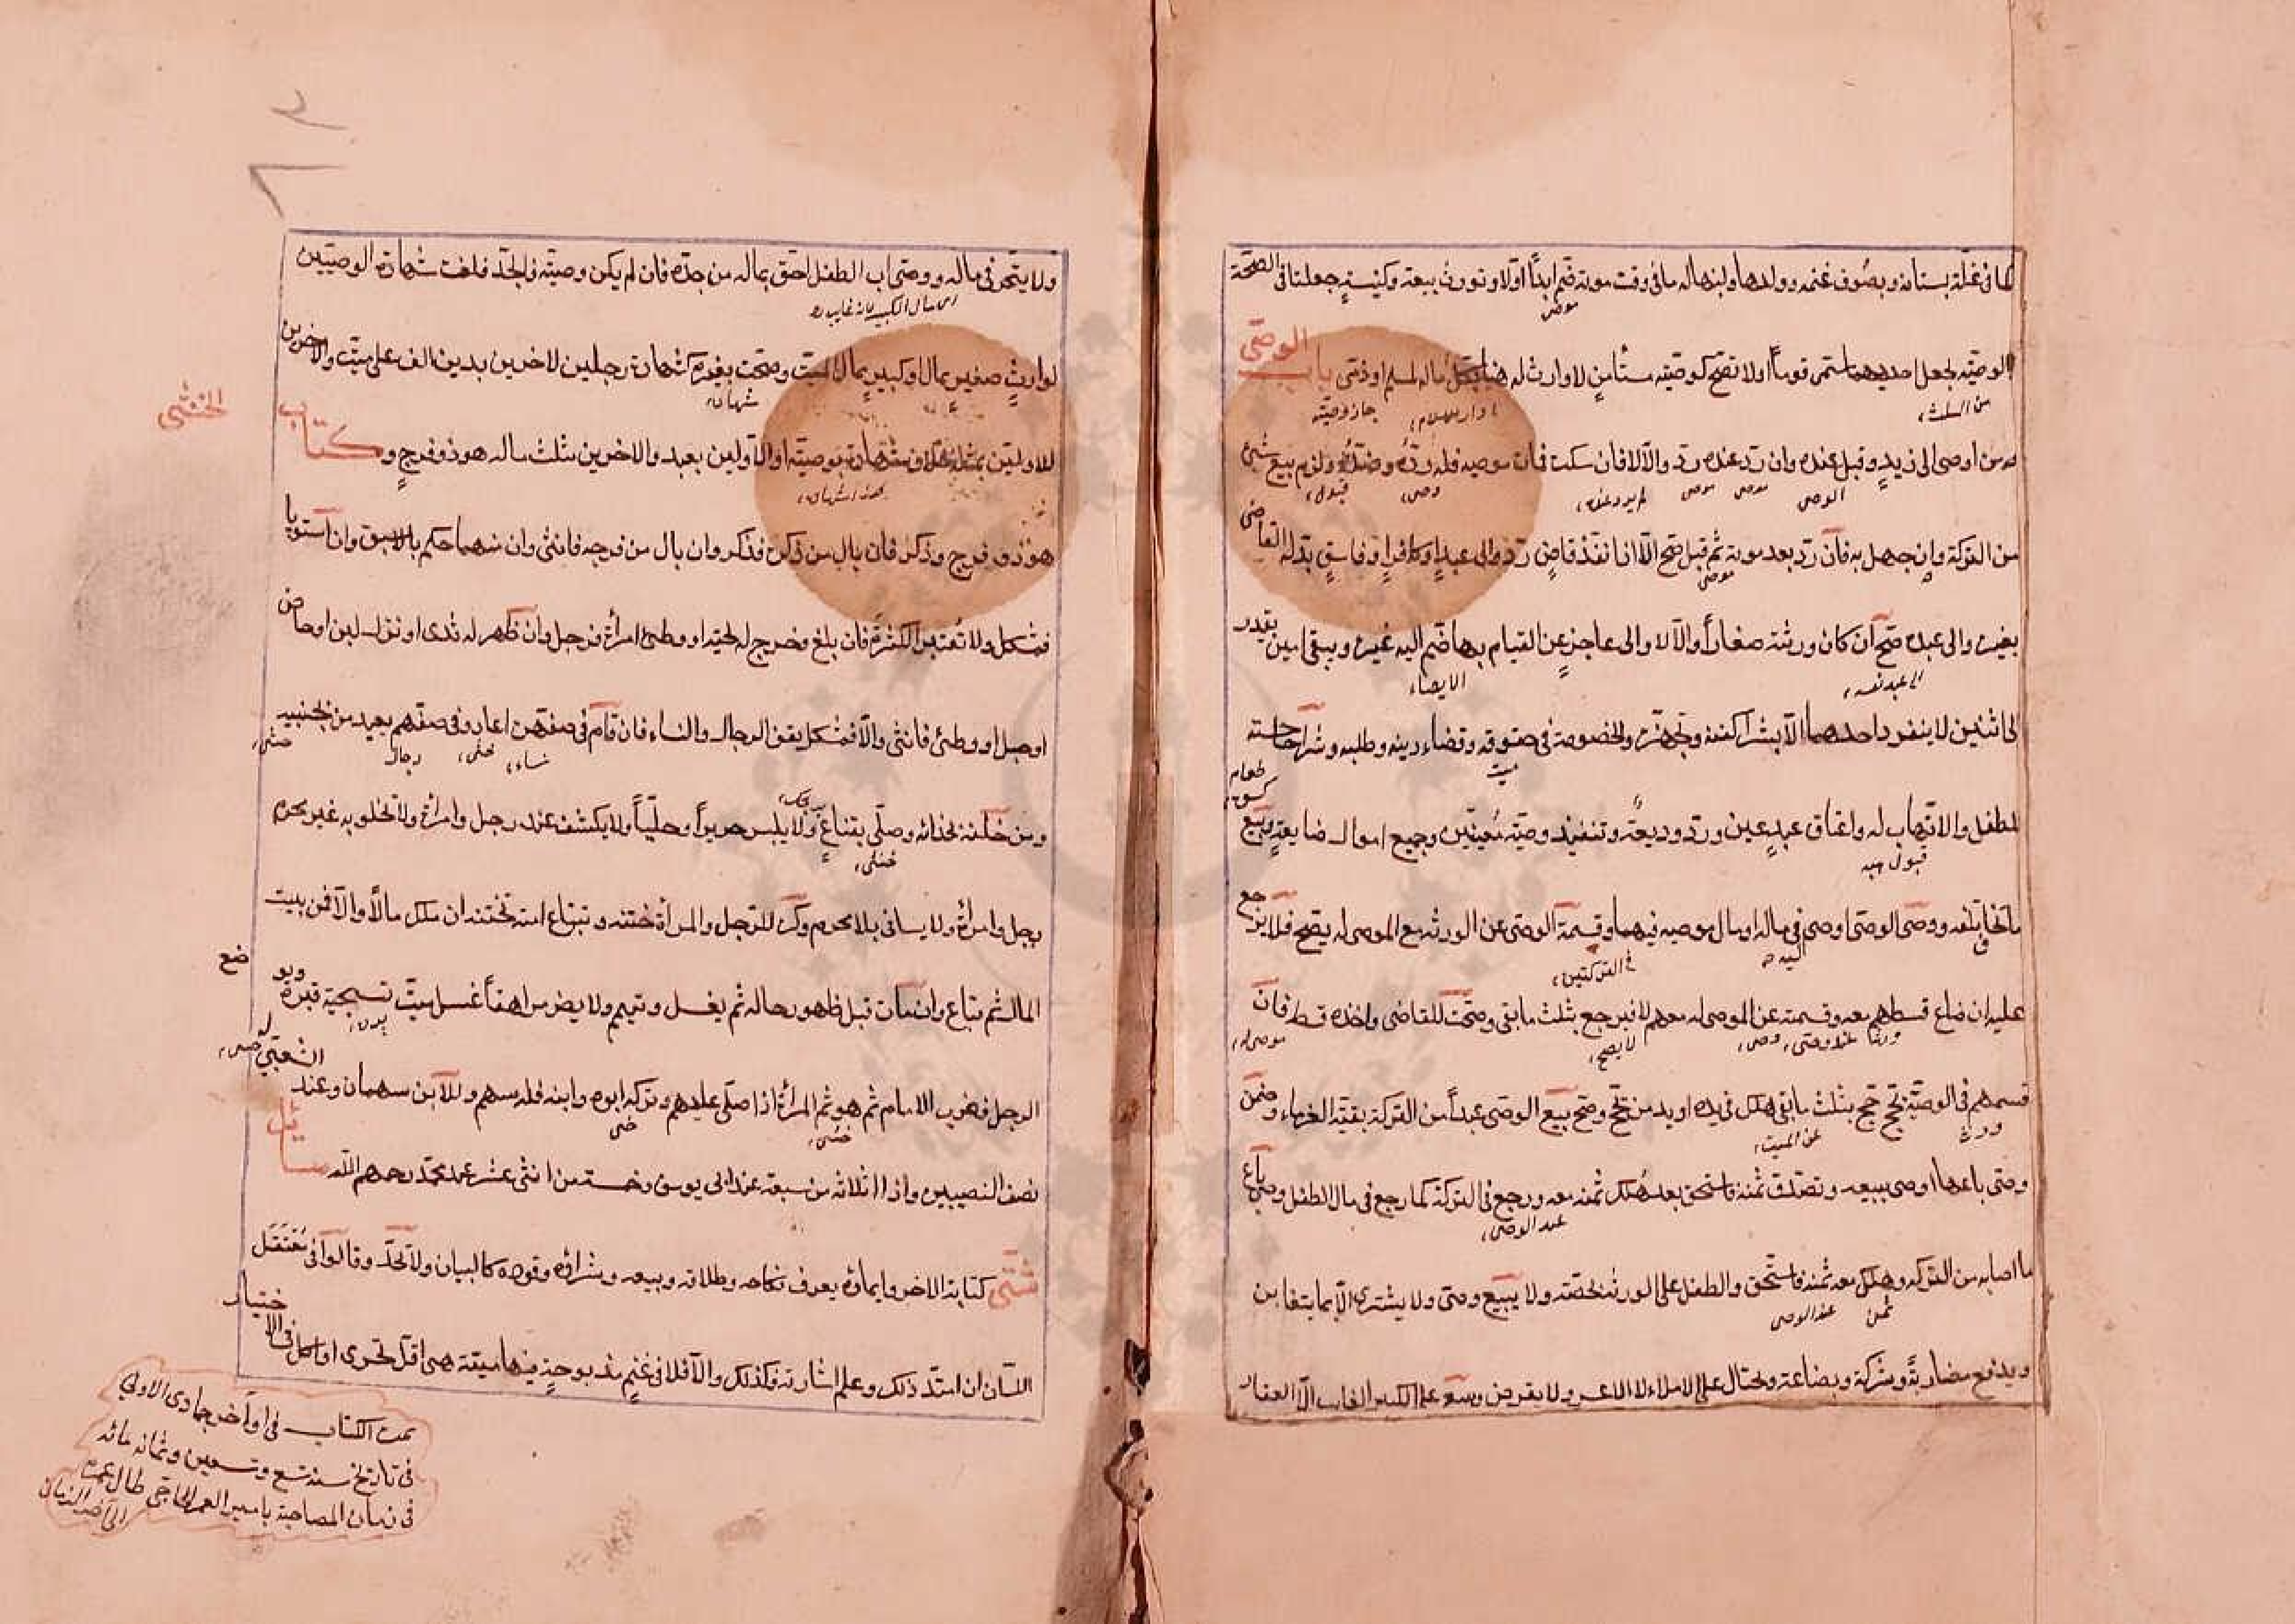 كما في غلّة بستانه وبصوف غنمه وولدها ولبنها له ما في وقت موته ضم ابدًا اولا وتورث بيعة وكنيسة جعلتا في الصحّة
موصى
الوصّى
الوصيّة بجعل احديهما سمى قوماً اولا تصح كوصيّة مستأمن لا وارث له هنا بكلّ ماله لمسلم او ذمّى باب
من الثلث
جاز وصيّته
ومن اوصى الى زيد وقبل عنده وان ردّ عنده ردّ والّا لا فان سكت فمات موصيه فله ردّه وضدّه ولزم بيع شئ
الوصى موصى موصى
قبول
من التركة وان جهل به فان ردّ بعد موته ثم قبل صح الّا اذا نفذ قاضٍ ردّه والى عبد او كافر او فاسق بدّله القاضى
موصى
بغيره والى عبده صحّ ان كان ورثته صغاراً والّا لا والى عاجز عن القيام بها ضمّ اليه غيره ويبقى امين يقدر
الى عبد نفسه
الايصاء
الى اثنين لا ينفرد احدهما الّا بشراء كفنه وتجهيزه والخصومة في حقوقه وقضاء دينه وطلبه وشراء حاجته
ميت
طعام
كسوة
للطفل والاتّهاب له واعتاق عبد عين وردّ وديعة وتنفيذ وصيّة معيّنتين وجميع اموال ضايعة وبيع
قبول هبه
ما يخاف تلفه ووصّى الوصّى اوصى في ماله او مال موصيه فيهما وقسمة الوصّى عن الورثة مع الموصى له يصح فلا يرجع
اليه
في التركتين
عليه ان ضاع قسطهم معه وقسمته عن الموصى له معهم لا فيرجع بثلث ما بقى وصحّت للقاضى واخذه قسطه فان
لا يصح
موصى له
قسمهم في الوصيّة بحج حجّ بثلث ما بقى ان هلك في يده او يد من يحج وصح بيع الوصّى عبداً من التركة بغيبة الغرماء وضمن
ورثه
عن الميت
وصّى باع ما اوصى ببيعه وتصدّق ثمنه فاستحق بعد هلك ثمنه معه ورجع في التركة كما رجع في مال الطفل وصّى باع
عند الوصى
ما اصابه من التركة وهلك معه ثمنه فاستحق والطفل على الورثة بحصّته ولا يبيع وصّى ولا يشترى الّا بما يتغابن
ثمن
عند الوصى
ويدفع مضاربةً وشركة وبضاعة ويحتال على الاملاء لا الاعسر ولا يقرض ويبيع على الكبير الغائب الّا العقار
ولا يتّجر في ماله ووصّى اب الطفل احق بماله من جدّه فان لم يكن وصيّه فالجدّ فلغت شهادة الوصيّين
لوارث صغير بمال او كبير بمال الميّت وصحّت بغيره كشهادة رجلين لاخرين بدين الف على ميّت والاخرين
شهادة
للاولين بمثله بخلاف شهادة بوصيّة او الاولين بعبد والاخرين بثلث ماله هو ذو فرج و كتاب
الخنثى
هو ذو فرج وذكر فان بال من ذكره فذكر وان بال من فرجه فانثى وان منهما حكم بالاسبق وان استويا
فمشكل ولا تعتبر الكثرة فان بلغ وخرج له لحية او وطئ امرأة فرجل وان ظهر له ثدى او نزل لبن او حاض
او حبل او وطئ فانثى والّا فمشكل يقف بين الرجال والنساء فان قام في صفّهن اعاد وفي صفّهم يعيد من بجنبيه
نساء خنثى رجال خنثى
ومن خلفه بحذائه وصلّى بقناع ولا يلبس حريراً وحليّاً ولا يكشف عند رجل وامرأة ولا يخلو به غير محرم
خنثى
رجل وامرأة ولا يسافر بلا محرم وكره للرّجل والمرأة ختنه وتبتاع امة تختنه ان ملك مالاً والّا فمن بيت
المال ثم تباع وان مات قبل ظهور حاله لم يغسل وتيمم ولا يحضر مراهقاً غسل ميّت تسجية قبره ويوضع
الرجل بقرب الامام ثم هو ثم المرأة اذا صلّى عليهم وتركه ابوه وابنه فله سهم وللابن سهمان وعند الشعبى له
خنثى
نصف النصيبين وذا ثلاثة من سبعة عند ابى يوسف وخمسة من اثنى عشر عند محمّد رحمهم اللّه مسائل
شتّى كتابة الاخرس وايماؤه يعرف نكاحه وطلاقه وبيعه وشراؤه وقوده كالبيان ولا يحدّ وقالوا في معتقل
اللسان ان امتدّ ذلك وعلم اشارته فكذلك والّا فلا في غنم مذبوحة فيها ميتة هى اقلّ تحرى واكل في الاختيار
تمت الكتاب في اواخر جمادى الاولى
في تاريخ سنة تسع وتسعين وثمانه مائة
في زمان المصاحبة
الى آخر الزمان